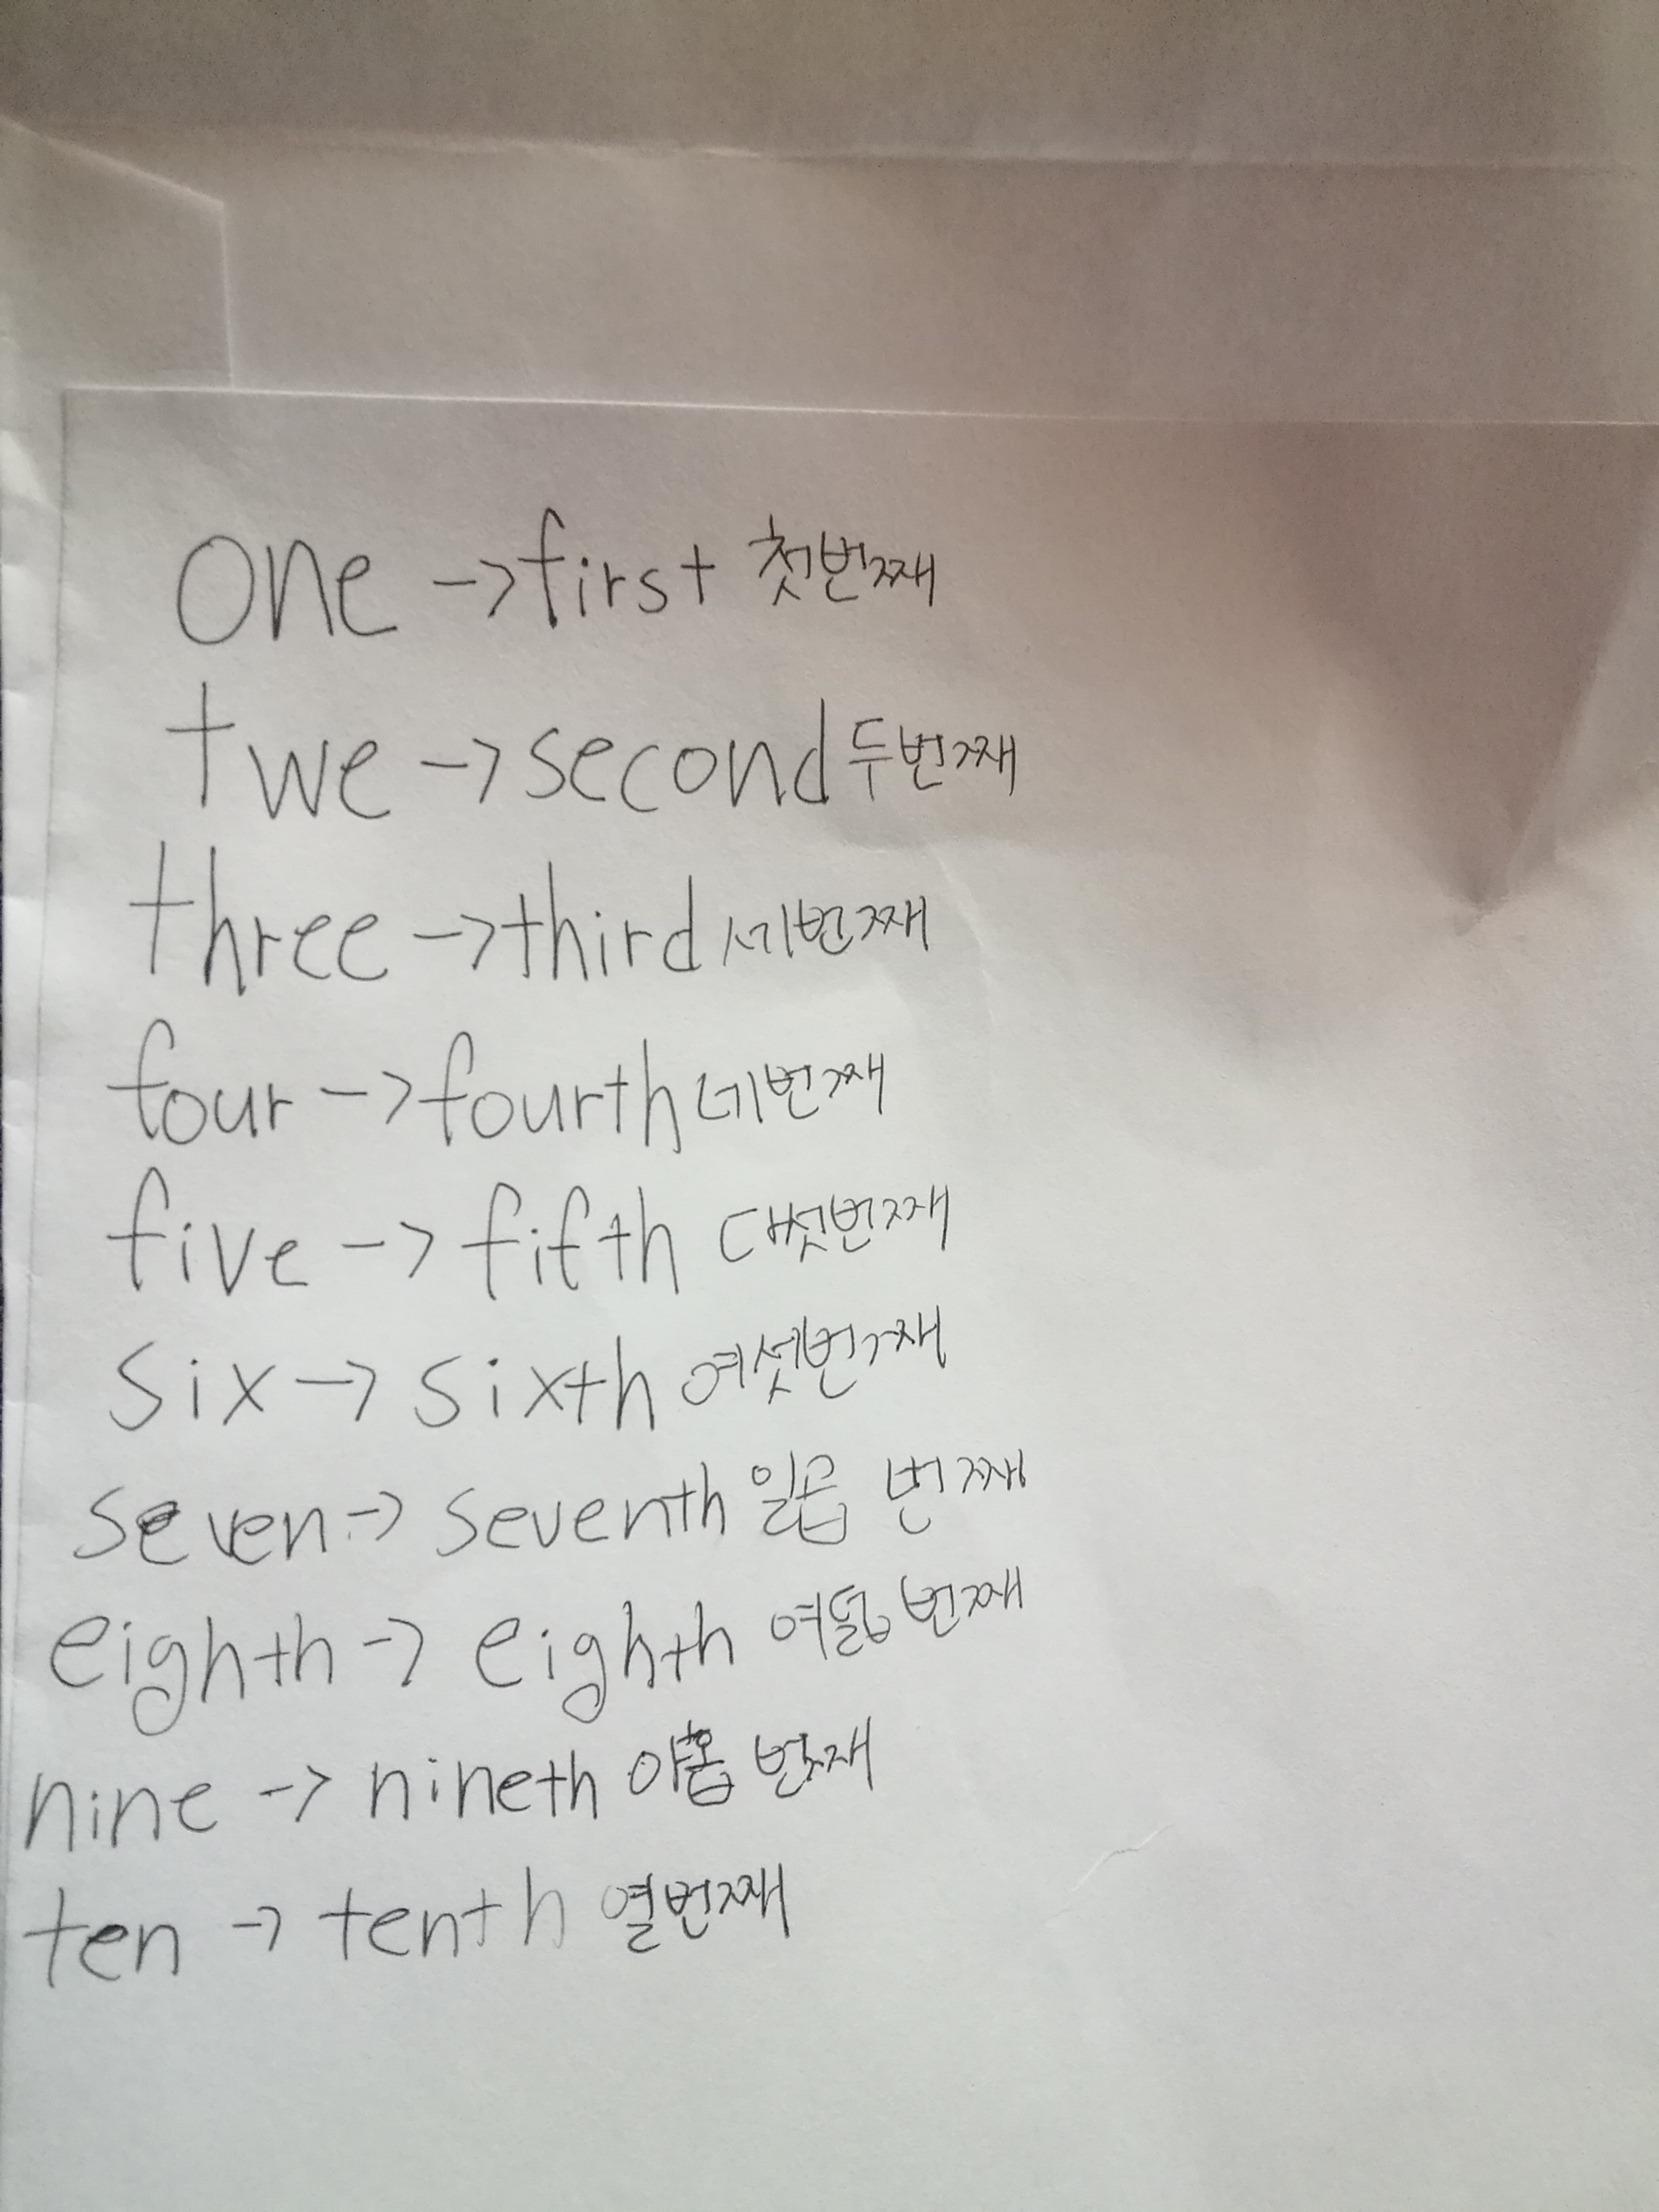 one → first 첫번째
twe → second 두번째
three → third 세번째
four → fourth 네번째
five → fifth 대섯번째
six → sixth 여섯번째
seven → seventh 일곱 번째
eighth → eighth 여덟 번째
nine → nineth 아홉 번째
ten → tenth 열번째